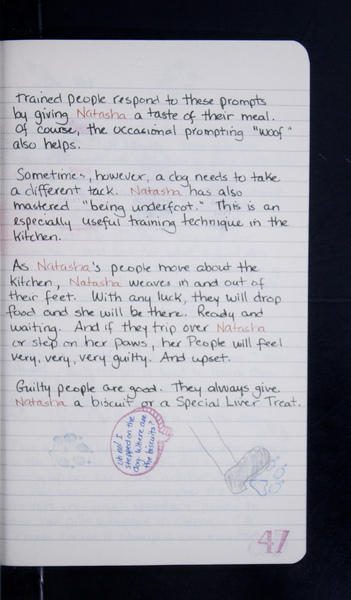 Trained people respond to these prompts
by giving Natasha a taste of their meal.
Of course, the occasional prompting "woof"
also helps.
Sometimes, however, a dog needs to take
a different tack. Natasha has also
mastered "being underfoot." This is an
especially useful training technique in the
kitchen.
As Natasha's people move about the
kitchen, Natasha weaves in and out of
their feet. With any luck, they will drop
food and she will be there. Ready and
waiting. And if they trip over Natasha
or step on her paws, her People will feel
very, very, very guilty. And upset.
Guilty people are good. They always give
Natasha a biscuit or a Special Liver Treat.
Oh no! I
stepped on the
dog. Where are
the biscuits?
47